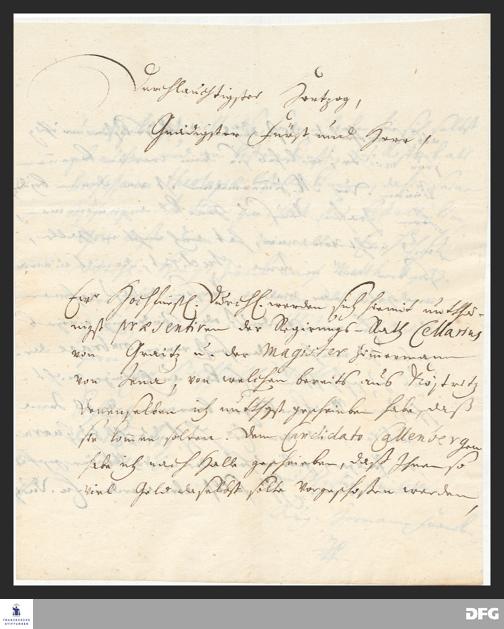 Durchlauchtigster Hertzog,
Gnädigster Fürst und Herr
Ew. Hochfürstl. Durchl. werden sich hiermit unterthä-
nigst præsentiren der Regierungs-Rath Cellarius
von Graitz u. der Magister Zimmermann
von Jena, von welchen bereits aus Köstritz
Denenselben ich unterthgst geschrieben habe, daß
sie komen solten. Dem Candidato Callenberg
habe ich nach Halle geschrieben, daß Ihnen so
viel Geld daselbst solte vorgeschoßen werden,
FRANCKESCHE
STIFTUNGEN
DFG